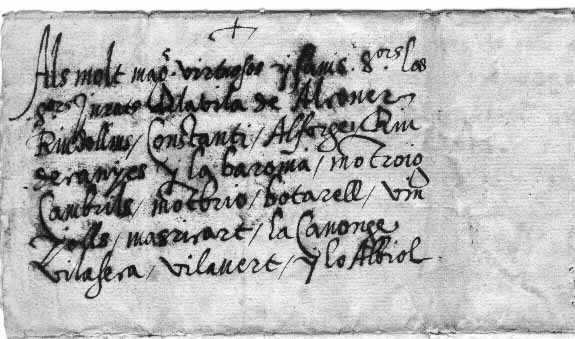 +
Als molt mag.s virtuosos y savis s.ors los
s.ors Jurats d la vila de Alcover
Riudollms / Constanti / Alforge / Riu
decanyes y la baronia / mo troio
Cambrils / mo tbrio / botarell / vin
yolls / masricart / la Canonge
vilaseca / vilavert / y lo Albiol